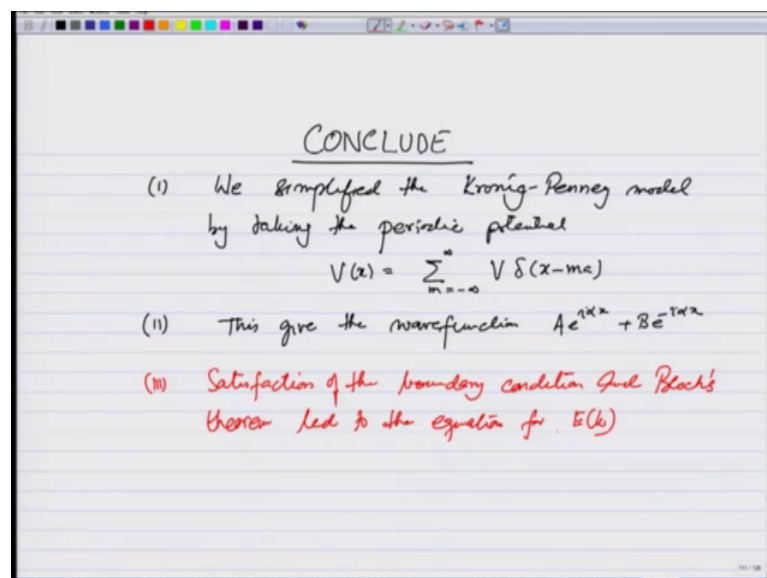 CONCLUDE
(I) We simplified the Kronig-Penney model
by taking the periodic potential
V(x) = ∑_{m=-∞}^{∞} V δ(x-ma)
(II) This give the wavefunction Ae^{iαx} + Be^{-iαx}
(III) Satisfaction of the boundary condition and Bloch's
theorem led to the equation for E(k)